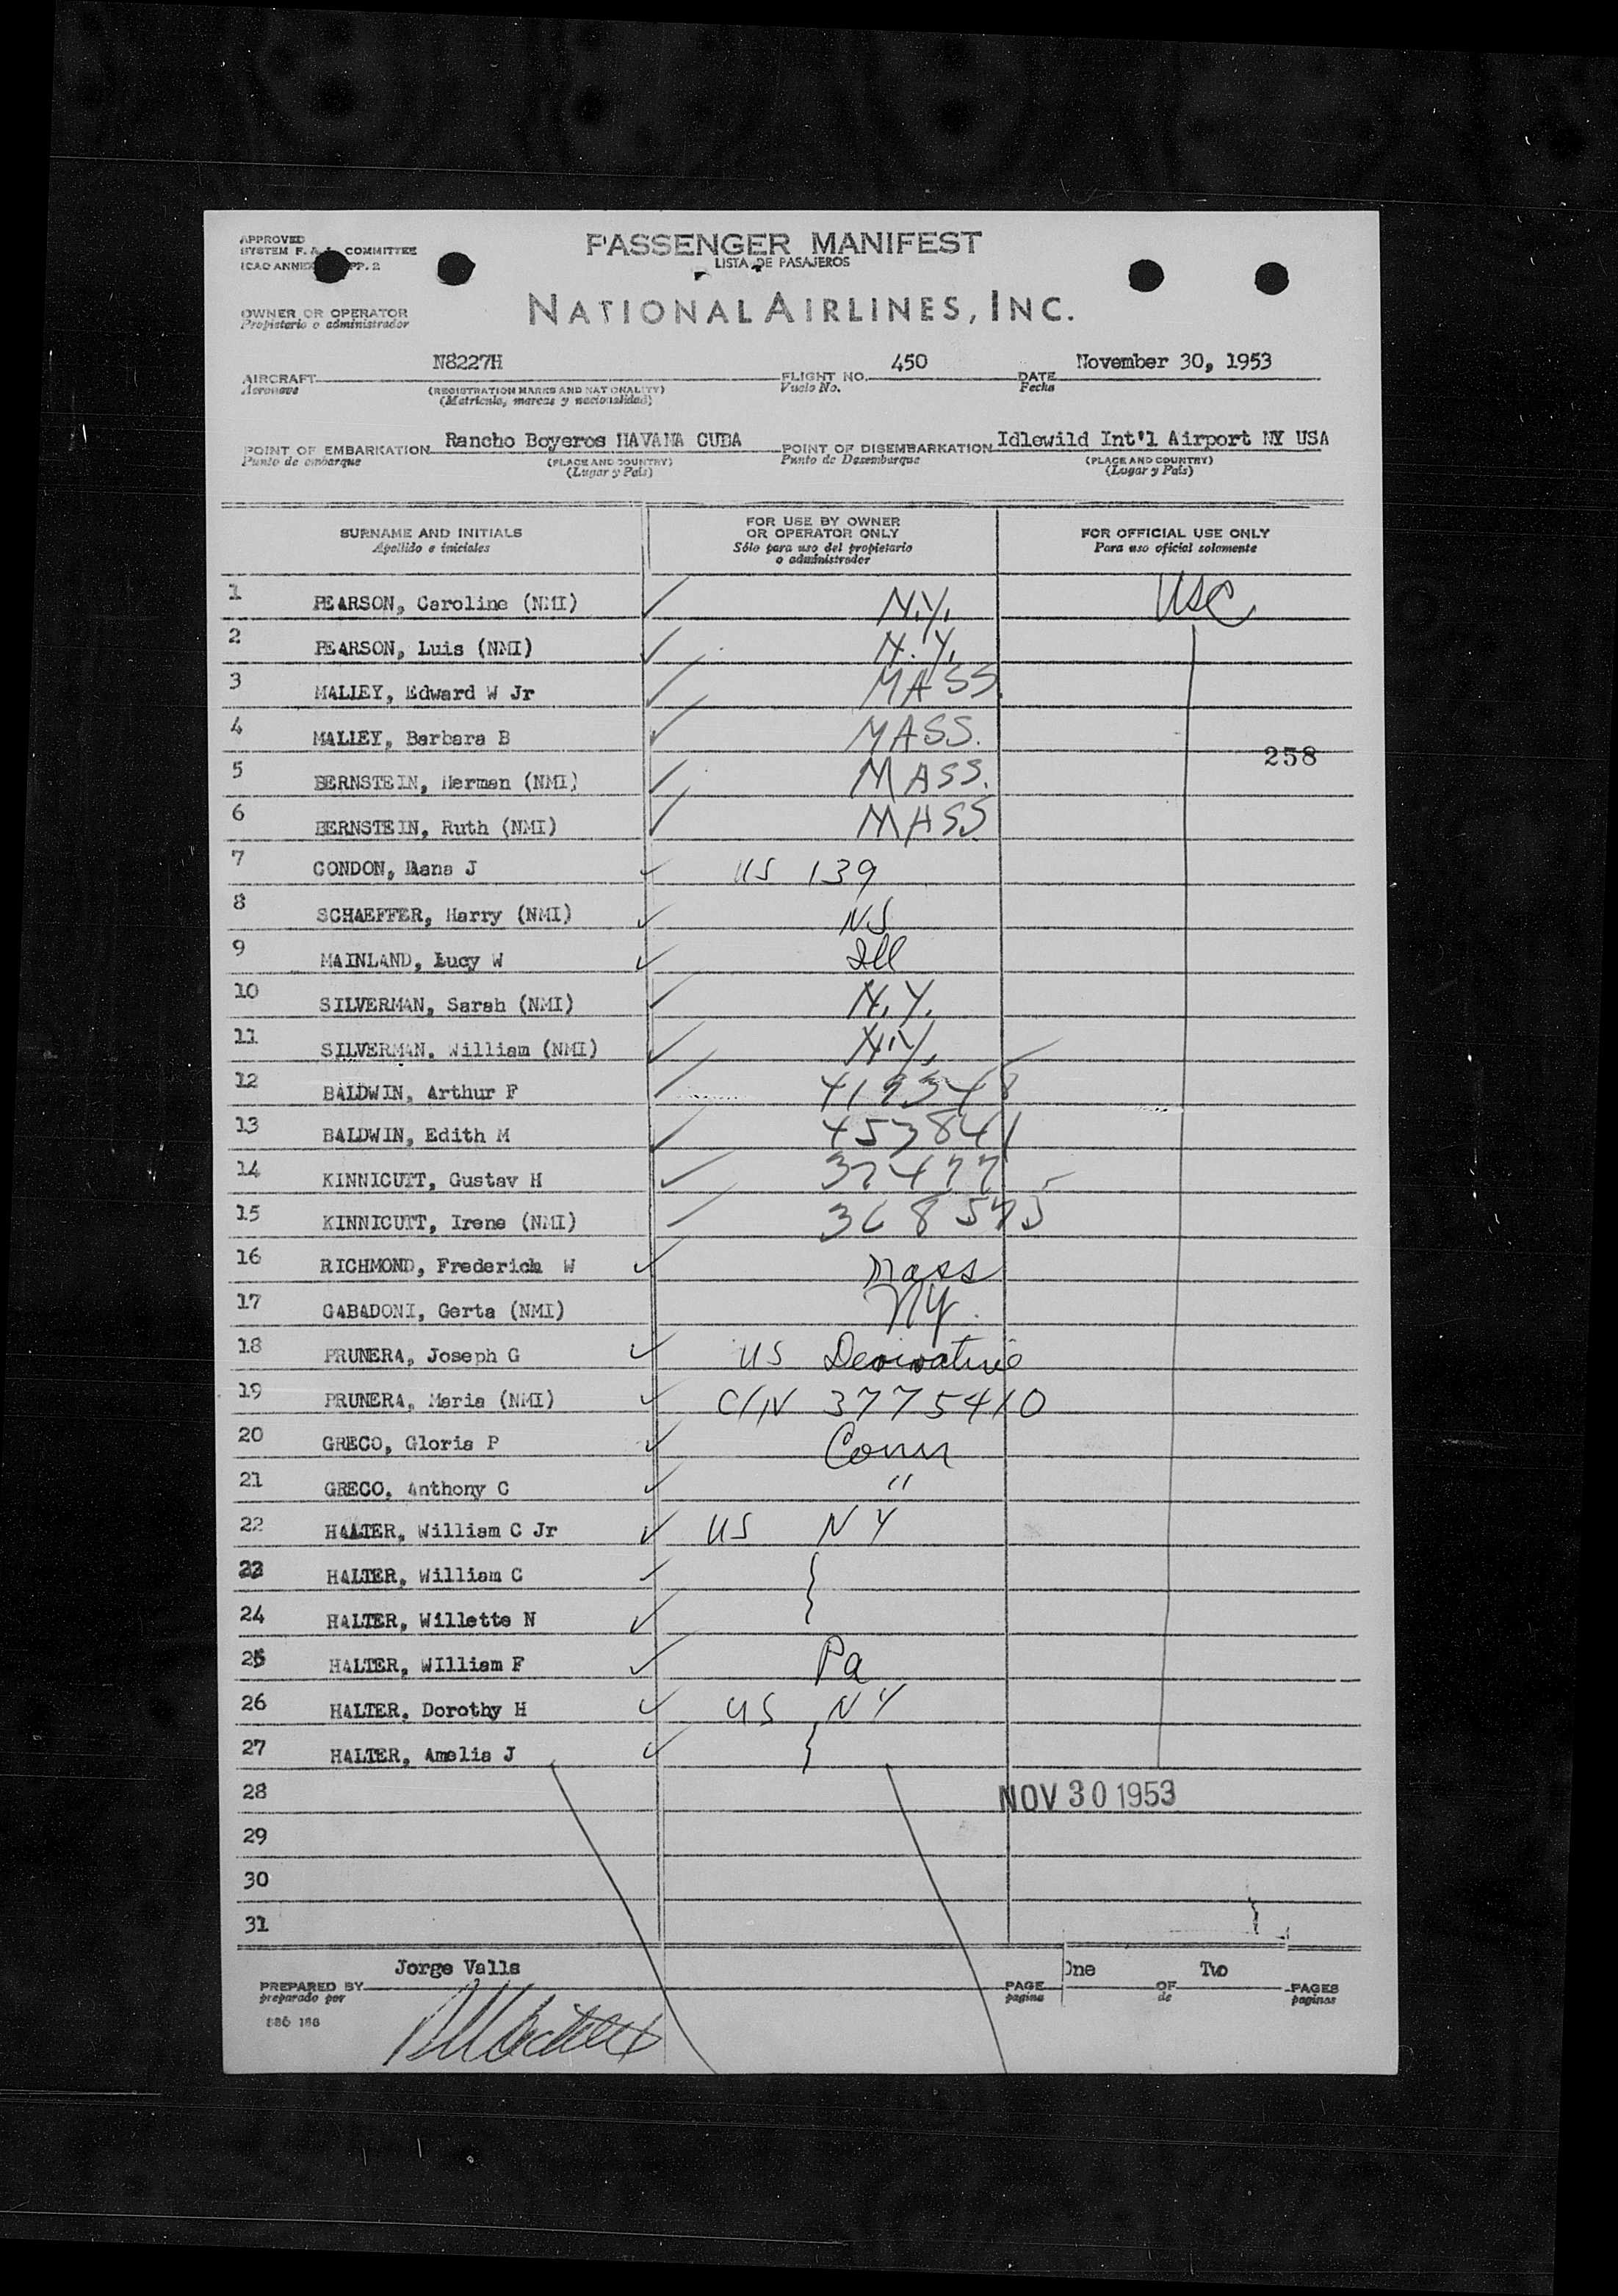 APPROVED
SYSTEM F. A. L. COMMITTEE
ICAO ANNEX PP. 2
PASSENGER MANIFEST
LISTA DE PASAJEROS
NATIONAL AIRLINES, INC.
OWNER OR OPERATOR
Propietario o administrador
AIRCRAFT N8227H FLIGHT NO. 450 DATE November 30, 1953
Aeronave (REGISTRATION MARKS AND NATIONALITY) Vuelo No. Fecha
(Matricula, marcas y nacionalidad)
POINT OF EMBARKATION Rancho Boyeros HAVANA CUBA POINT OF DISEMBARKATION Idlewild Int'l Airport NY USA
Punto de embarque (PLACE AND COUNTRY) Punto de Desembarque (PLACE AND COUNTRY)
(Lugar y País) (Lugar y País)
SURNAME AND INITIALS FOR USE BY OWNER OR OPERATOR ONLY FOR OFFICIAL USE ONLY
Apellido e iniciales Sólo para uso del propietario o administrador Para uso oficial solamente
1 PEARSON, Caroline (NMI) N.Y. USC
2 PEARSON, Luis (NMI) N.Y.
3 MALLEY, Edward W Jr MASS.
4 MALLEY, Barbara B MASS.
258
5 BERNSTEIN, Herman (NMI) MASS.
6 BERNSTEIN, Ruth (NMI) MASS
7 CONDON, Dana J US 139
8 SCHAEFFER, Harry (NMI) NJ
9 MAINLAND, Lucy W Ill
10 SILVERMAN, Sarah (NMI) N.Y.
11 SILVERMAN, William (NMI) N.Y.
12 BALDWIN, Arthur F 419548
13 BALDWIN, Edith M 453841
14 KINNICUTT, Gustav H 37477
15 KINNICUTT, Irene (NMI) 368575
16 RICHMOND, Frederick W Mass
17 GABADONI, Gerta (NMI) NY.
18 PRUNERA, Joseph G US Derivative
19 PRUNERA, Maria (NMI) C/N 3775410
20 GRECO, Gloria P Conn
21 GRECO, Anthony C "
22 HALTER, William C Jr US NY
23 HALTER, William C
24 HALTER, Willette N
25 HALTER, WIlliam F Pa
26 HALTER, Dorothy H US NY
27 HALTER, Amelia J
28 NOV 30 1953
29
30
31
PREPARED BY Jorge Valls PAGE One OF Two PAGES
preparado por pagina de paginas